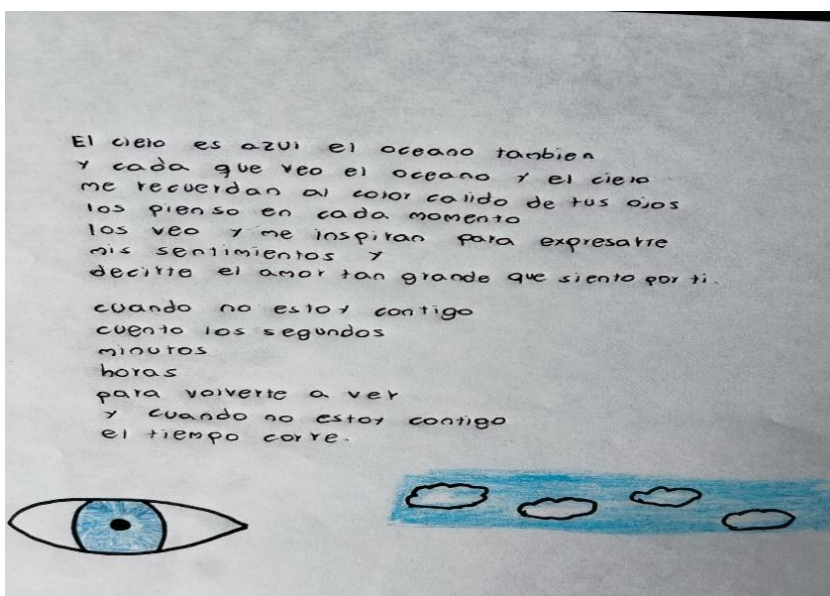 El cielo es azul el oceano tambien
y cada que veo el oceano y el cielo
me recuerdan al color calido de tus ojos
los pienso en cada momento
los veo y me inspiran para expresarte
mis sentimientos y
decirte el amor tan grande que siento por ti.
cuando no estoy contigo
cuento los segundos
minutos
horas
para volverte a ver
y cuando no estoy contigo
el tiempo corre.